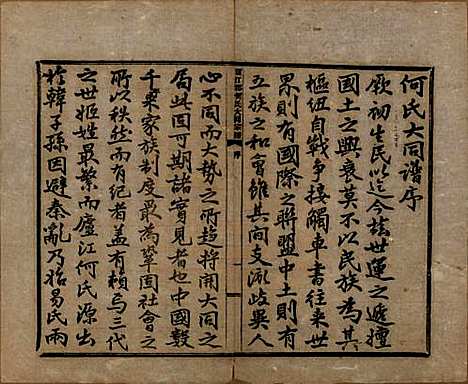 何氏大同譜序
厥初生民以迄今茲世運之遞嬗
國土之興衰莫不以民族為其
樞紐自戰爭接觸車書往來世
界則有國際之聯盟中土則有
五族之和會雖其向支派歧異人
心不同而大勢之所趨將開大同之
局此固可期諸實見者也中國數
千奕家族制度最為鞏固社會之
所以秩然而有紀者蓋有賴焉三代
之世姬姓最繁而廬江何氏源出
於韓子孫因避秦亂乃始易氏兩
廬江郡何氏大同宗譜
序
一